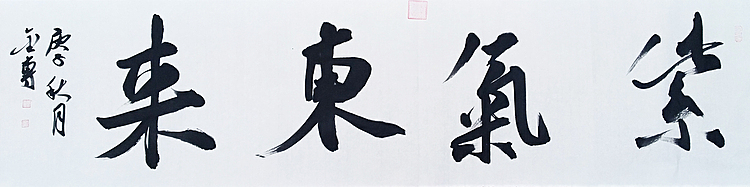 紫氣東来
庚子秋月